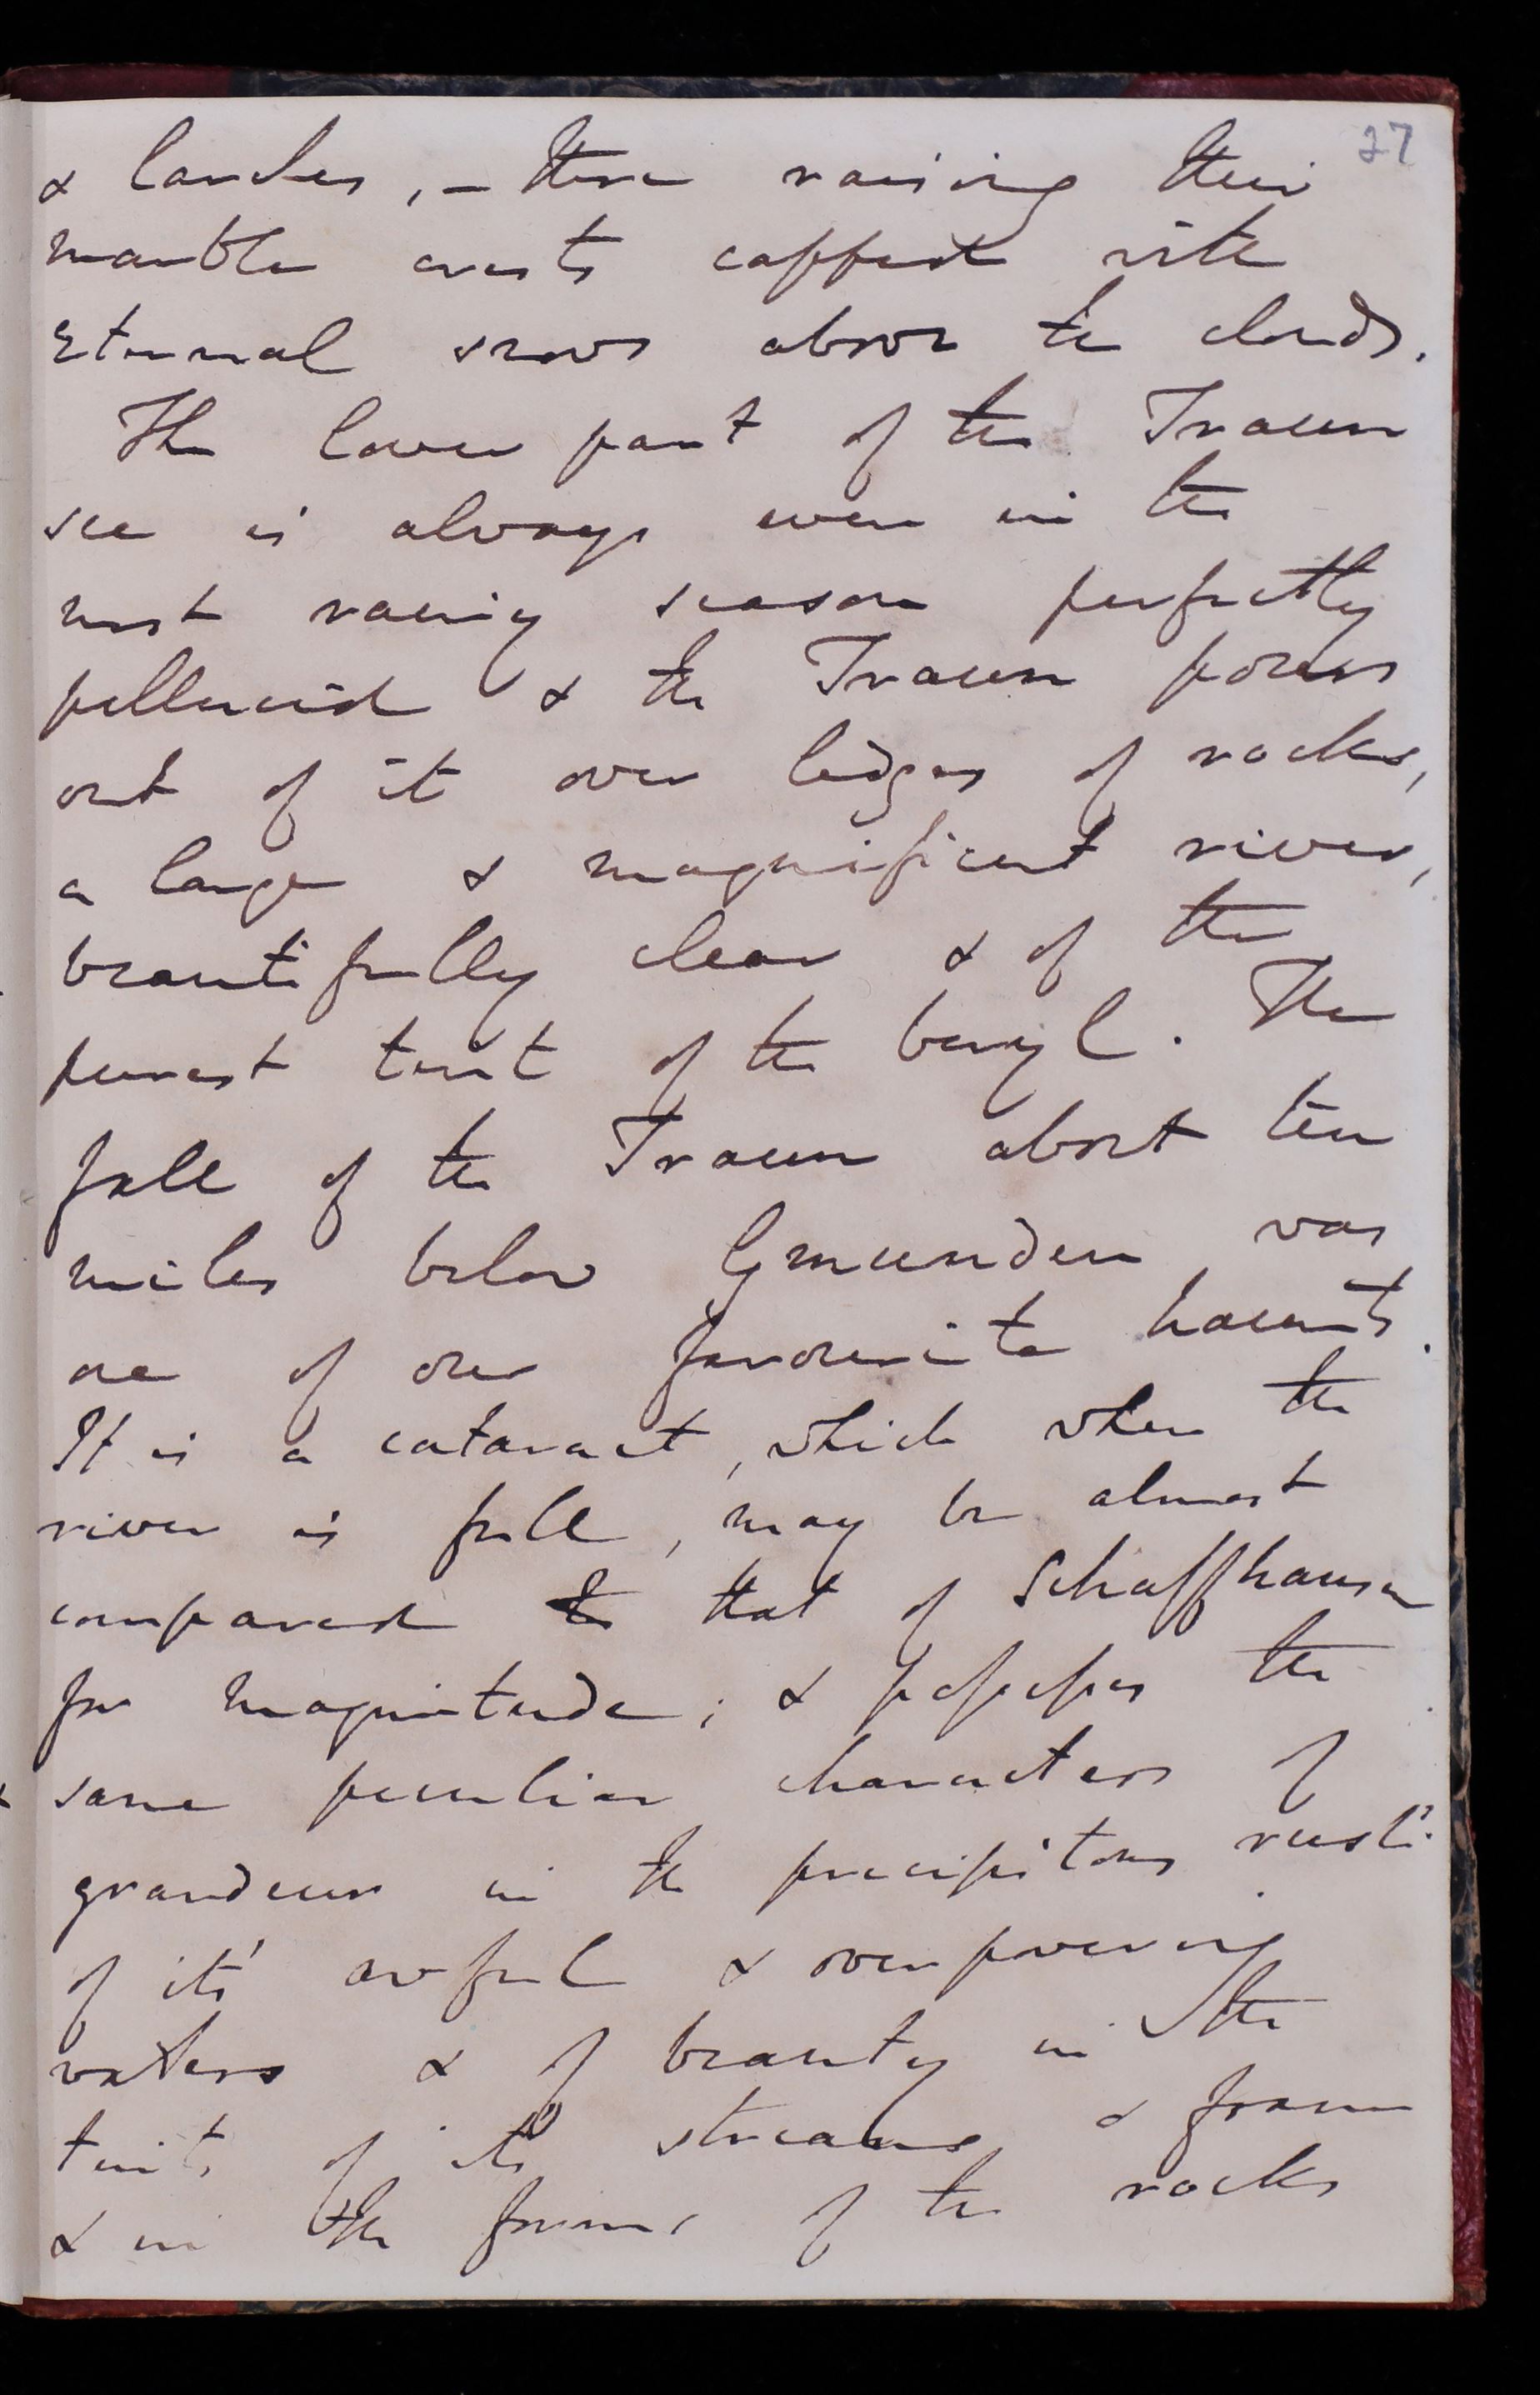 27
& larches, – there raising their
marble crests capped with
eternal snows above the clouds.
The lower part of the Traun
see is always even in the
most rainy season perfectly
pellucid & the Traun pours
out of it over ledges of rocks,
a large & magnificent river,
beautifully clear & of the
purest tint of the beryl. The
fall of the Traun about ten
miles below Gmunden was
one of our favourite haunts.
It is a cataract, which when the
river is full, may be almost
compared to that of Schaffhausen
for magnitude; & possesses the
same peculiar characters of
grandeur in the precipitous rush
of its' awful & overpowering
waters & of beauty in the
tints of its' streams & foam
& in the forms of the rocks